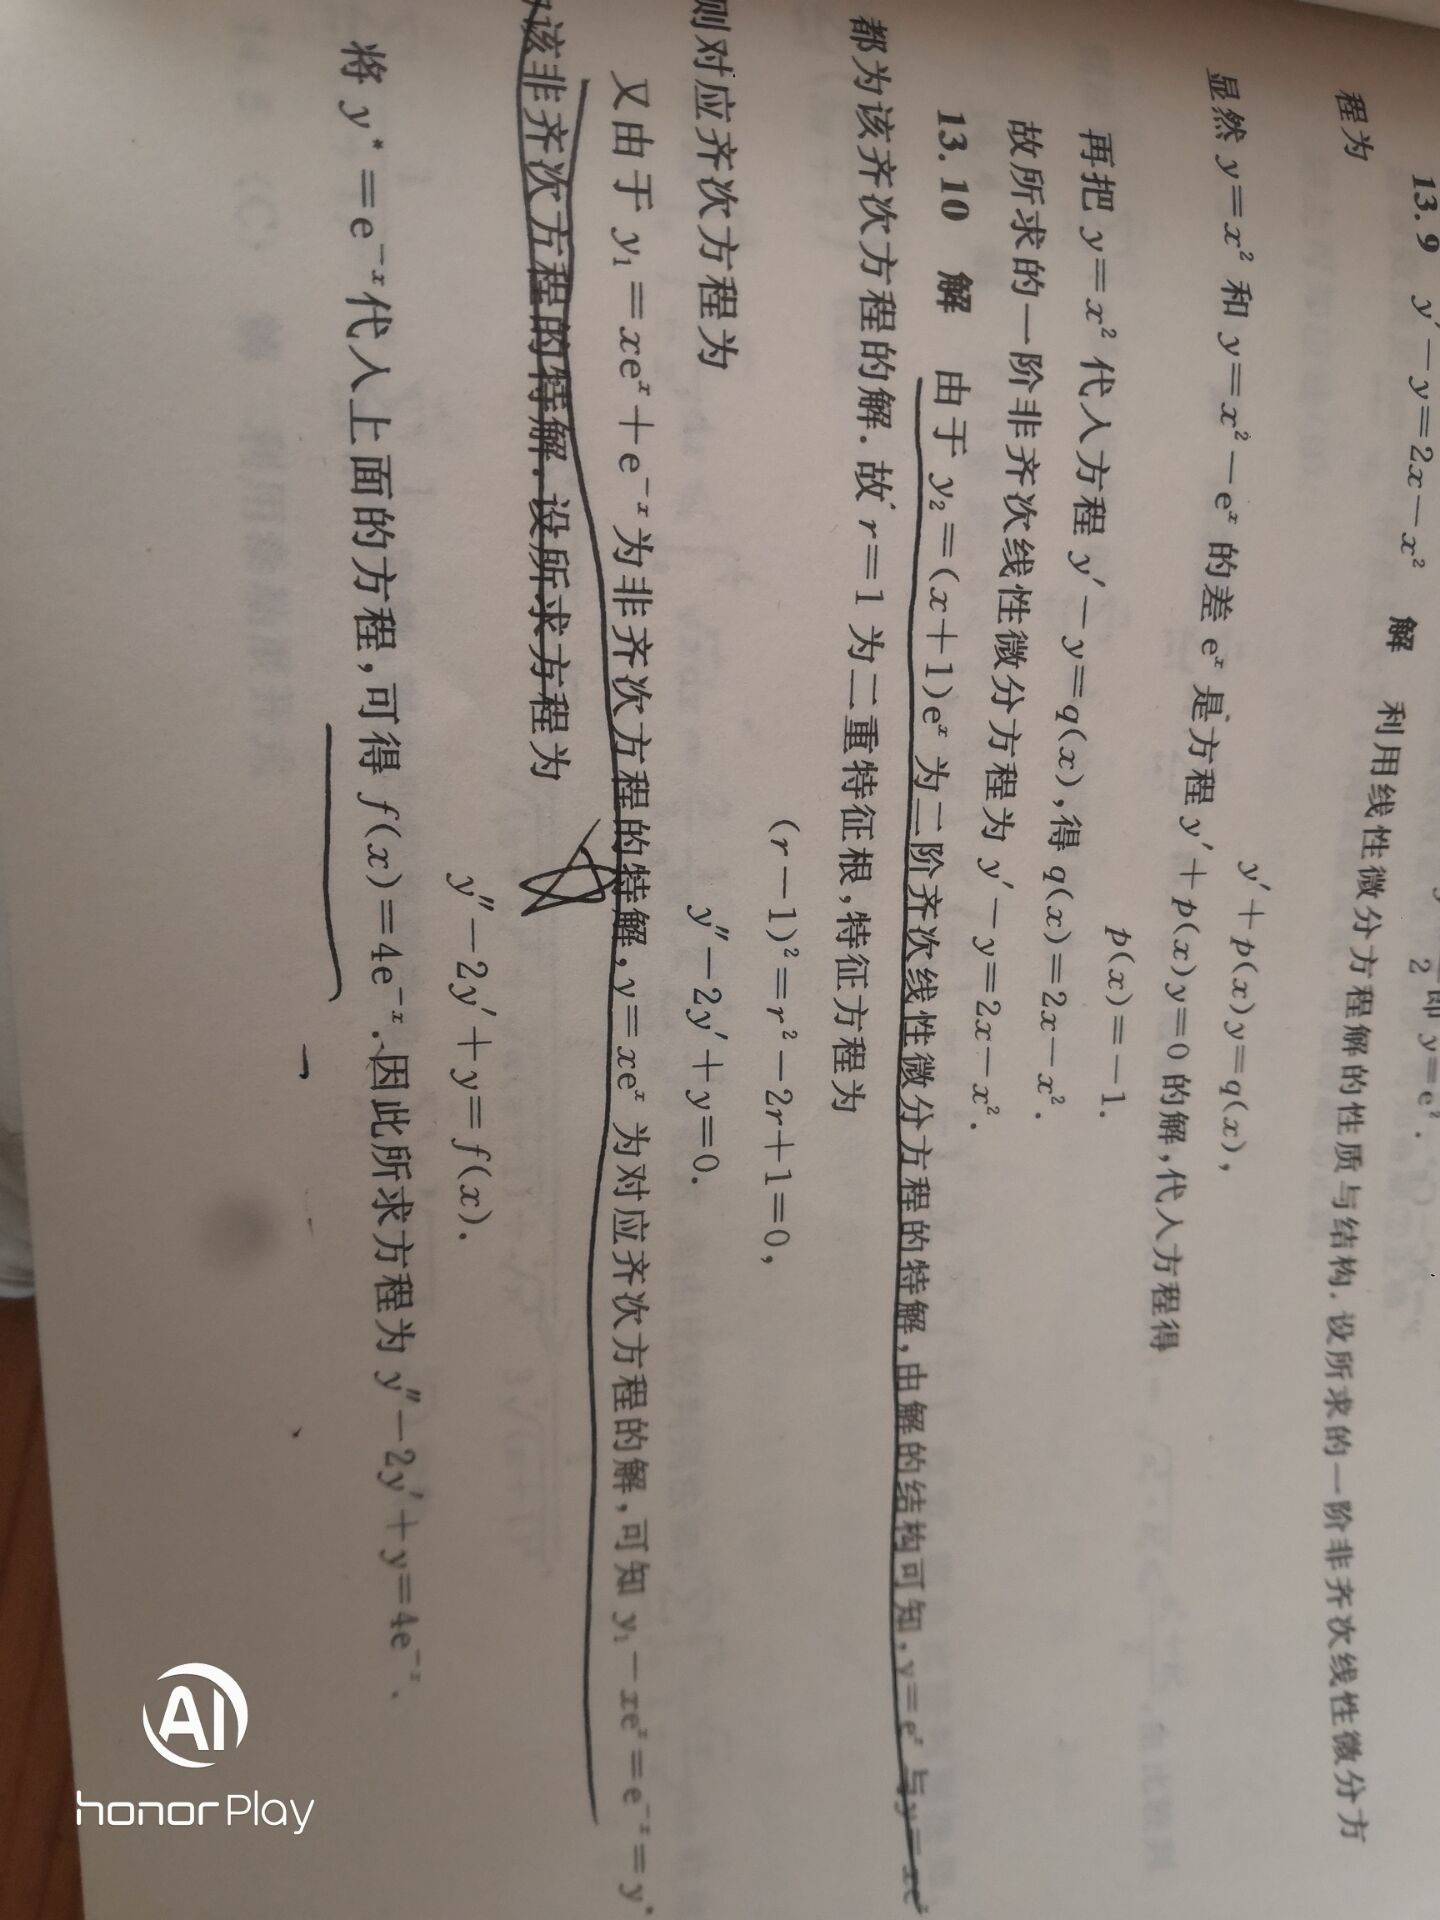 即 y=e².
13.9 y′-y=2x-x² 解 利用线性微分方程解的性质与结构.设所求的一阶非齐次线性微分方
程为
y′+p(x)y=q(x),
显然 y=x² 和 y=x²-eˣ 的差 eˣ 是方程 y′+p(x)y=0 的解,代入方程得
p(x)=-1.
再把 y=x² 代入方程 y′-y=q(x),得 q(x)=2x-x².
故所求的一阶非齐次线性微分方程为 y′-y=2x-x².
13.10 解 由于 y₂=(x+1)eˣ 为二阶齐次线性微分方程的特解,由解的结构可知,y=eˣ 与 y=xeˣ
都为该齐次方程的解.故 r=1 为二重特征根,特征方程为
(r-1)²=r²-2r+1=0,
则对应齐次方程为
y″-2y′+y=0.
又由于 y₁=xeˣ+e⁻ˣ 为非齐次方程的特解,y=xeˣ 为对应齐次方程的解,可知 y₁-xeˣ=e⁻ˣ=y*
该非齐次方程的特解.设所求方程为
y″-2y′+y=f(x).
将 y*=e⁻ˣ 代入上面的方程,可得 f(x)=4e⁻ˣ.因此所求方程为 y″-2y′+y=4e⁻ˣ.
AI
honor Play